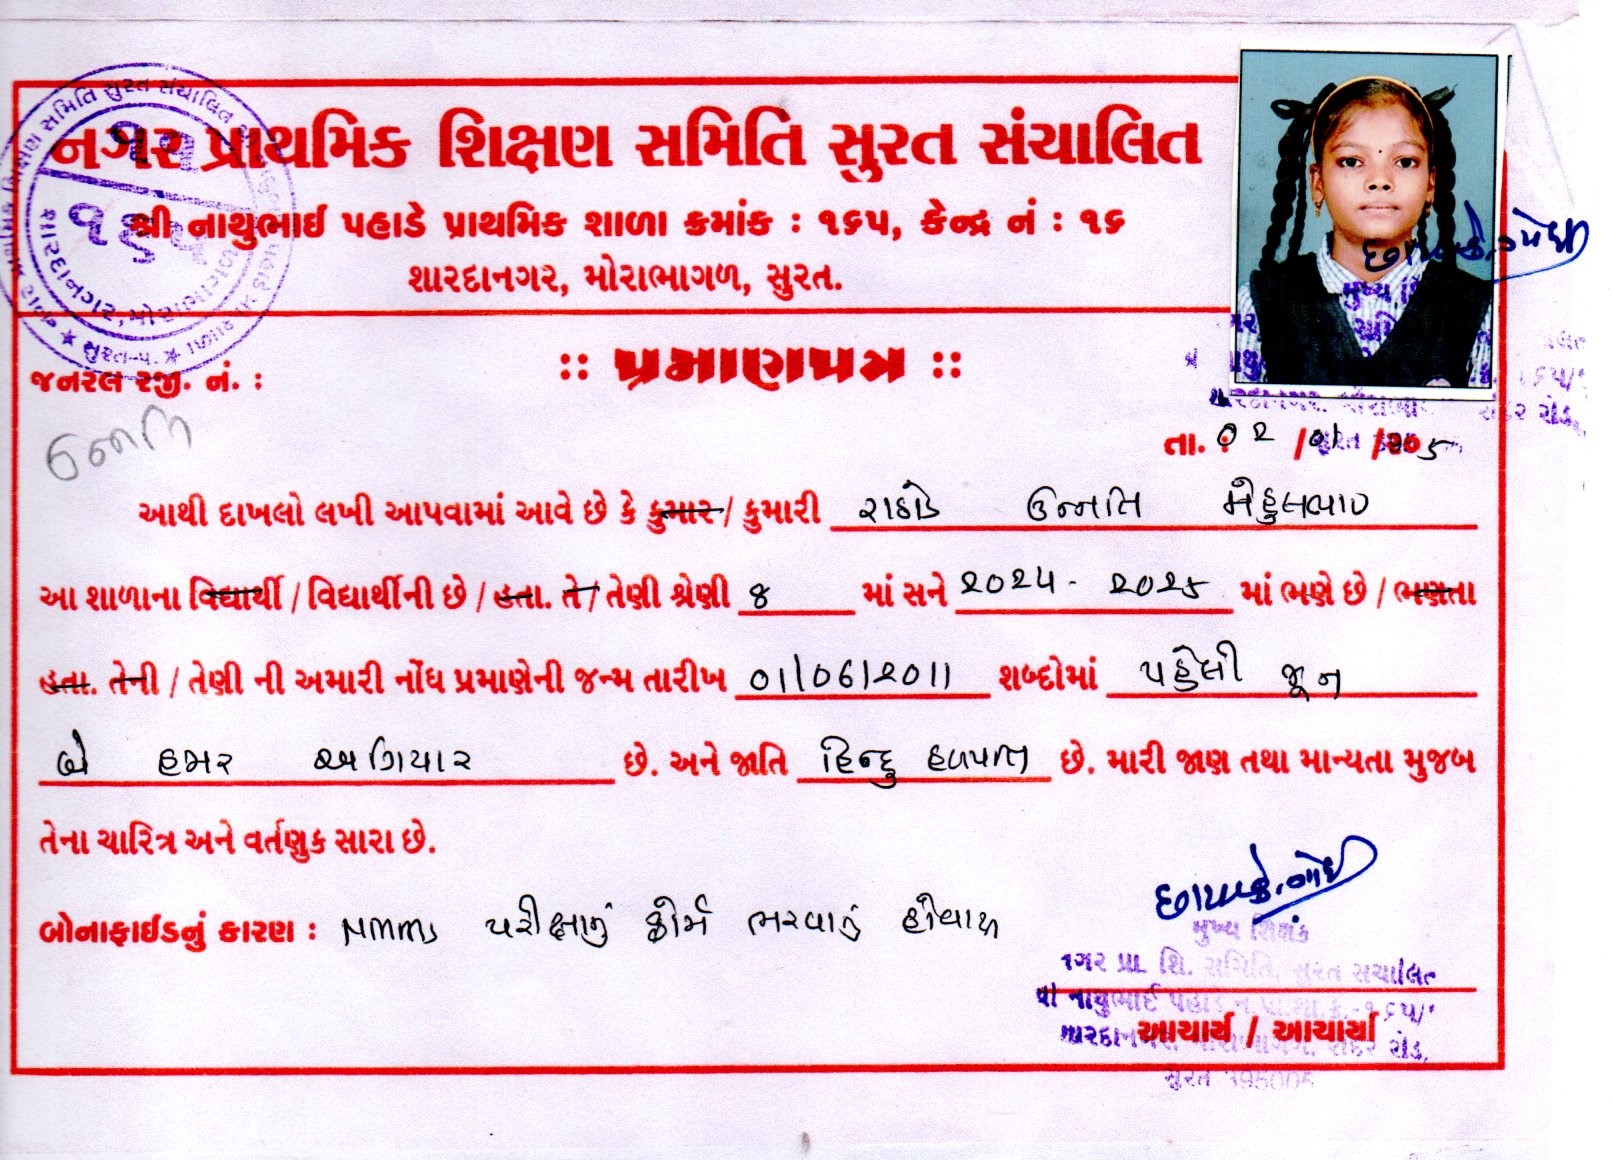 નગર પ્રાથમિક શિક્ષણ સમિતિ સુરત સંચાલિત
શ્રી નાથુભાઈ પહાડે પ્રાથમિક શાળા ક્રમાંક : ૧૬૫, કેન્દ્ર નં : ૧૬
શારદાનગર, મોરાભાગળ, સુરત.
:: પ્રમાણપત્ર ::
જનરલ રજી. નં. :
ઉન્નતિ
તા. 02 / 01 / 2025
આથી દાખલો લખી આપવામાં આવે છે કે કુમાર / કુમારી રાઠોડ ઉન્નતિ મેહુલભાઇ
આ શાળાના વિદ્યાર્થી / વિદ્યાર્થીની છે / હતા. તે / તેણી શ્રેણી 8 માં સને 2024 - 2025 માં ભણે છે / ભણતા
હતા. તેની / તેણી ની અમારી નોંધ પ્રમાણેની જન્મ તારીખ 01/06/2011 શબ્દોમાં પહેલી જૂન
બે હજાર અગિયાર છે. અને જાતિ હિન્દુ હળપતિ છે. મારી જાણ તથા માન્યતા મુજબ
તેના ચારિત્ર અને વર્તણુક સારા છે.
બોનાફાઈડનું કારણ : NMMS પરીક્ષાનું ફોર્મ ભરવાનું હોવાથી
મુખ્ય શિક્ષક
નગર પ્રા. શિ. સમિતિ, સુરત સંચાલિત
નાથુભાઈ પહાડે ન.પ્રા.શા.ક્ર.-૧૬૫
શારદાનગર, મોરાભાગળ, રાંદેર રોડ,
સુરત 395005
આચાર્ય / આચાર્યા